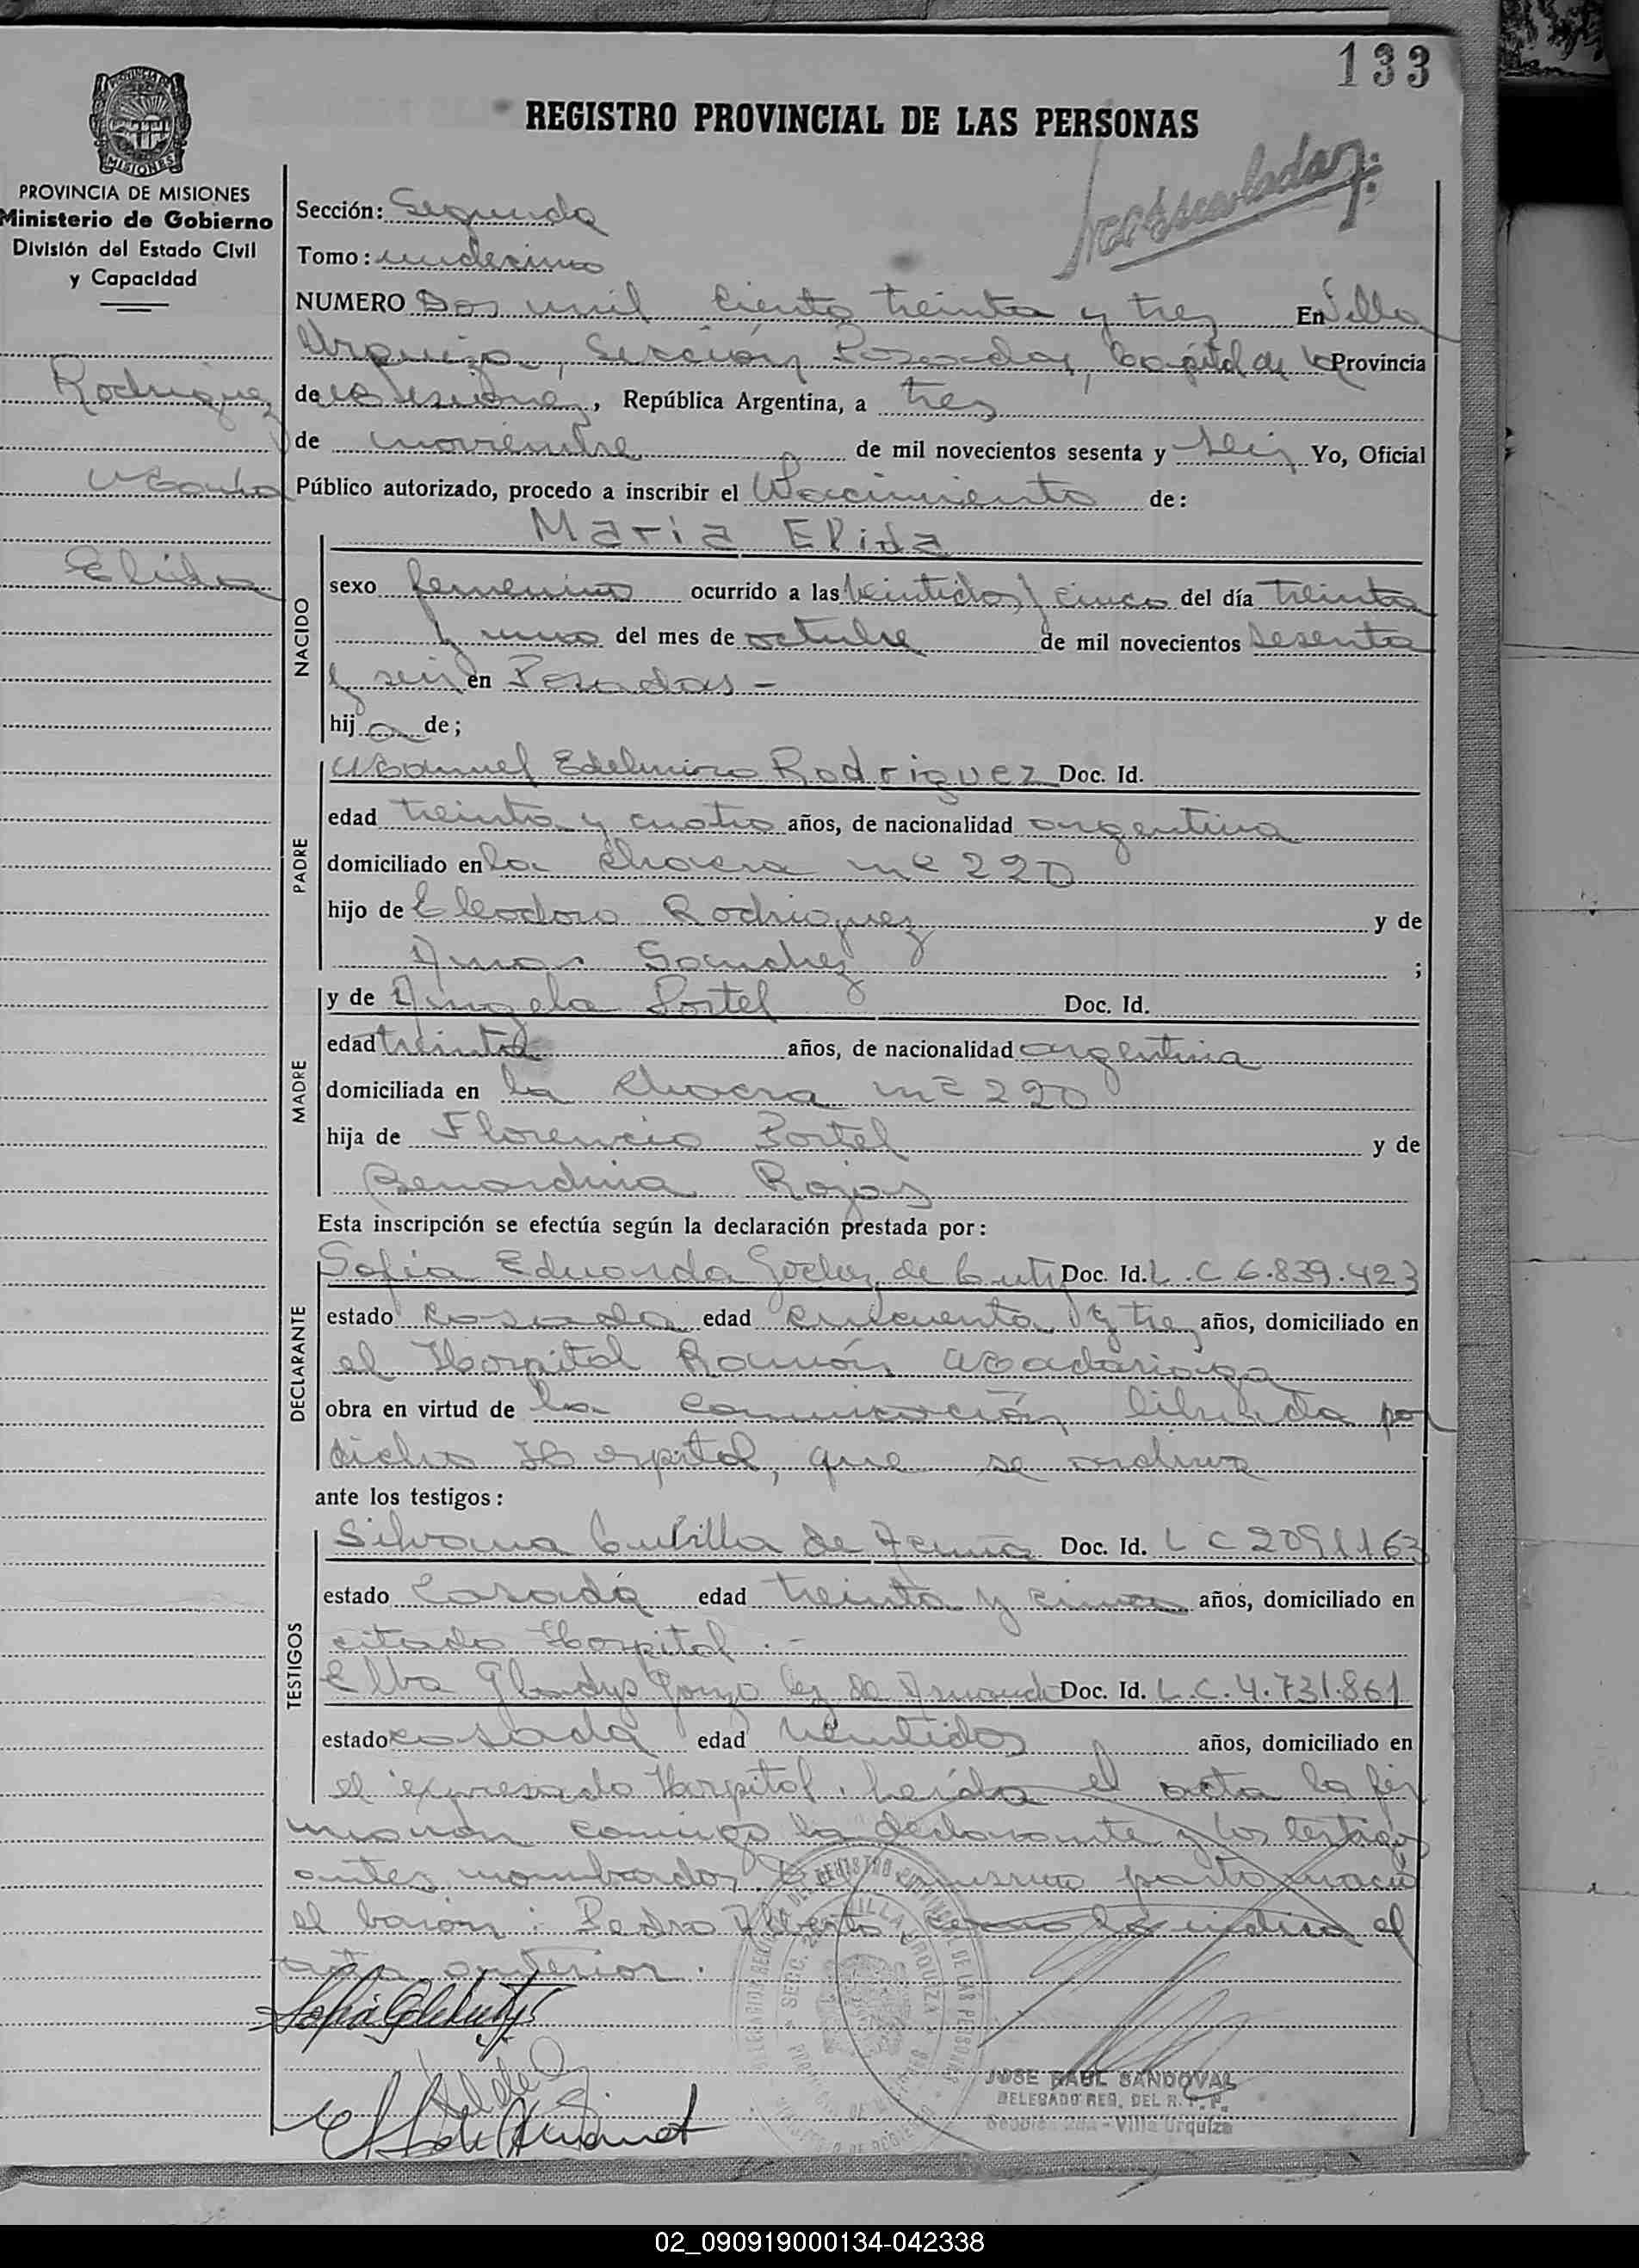 133
REGISTRO PROVINCIAL DE LAS PERSONAS
MISIONES
PROVINCIA DE MISIONES
Ministerio de Gobierno
División del Estado Civil
y Capacidad
Rodriguez
Maria
Elida
Sección: Segunda
Tomo: undesimo
NUMERO Dos mil ciento treinta y tres En Villa
Urquiza, Sección Posadas, Capital de la Provincia
de Misiones, República Argentina, a tres
de noviembre de mil novecientos sesenta y seis Yo, Oficial
Público autorizado, procedo a inscribir el Nacimiento de:
Maria Elida
NACIDO
sexo femenino ocurrido a las veintidos y cinco del día treinta
y uno del mes de octubre de mil novecientos sesenta
y seis en Posadas -
hij a de;
PADRE
Manuel Edelmiro Rodriguez Doc. Id.
edad treinta y cuatro años, de nacionalidad argentina
domiciliado en la chacra nº 220
hijo de Eleodoro Rodriguez y de
Ana Sanchez ;
MADRE
y de Angela Portel Doc. Id.
edad treinta años, de nacionalidad argentina
domiciliada en la chacra nº 220
hija de Florencio Portel y de
Benardina Rojas
Esta inscripción se efectúa según la declaración prestada por:
DECLARANTE
Sofia Eduarda de Doc. Id. L.C 6.839.423
estado casada edad cincuenta y tres años, domiciliado en
el Hospital Ramón Madariaga
obra en virtud de la comunicación librada por
dicho Hospital, que se archiva
ante los testigos:
TESTIGOS
Silvana de Doc. Id. L C 2091163
estado casada edad treinta y cinco años, domiciliado en
citado Hospital . -
Elba Gladys Gonzalez de Doc. Id. L.C. 4.731.861
estado casada edad veintidos años, domiciliado en
el expresado Hospital. Leída el acta la fir
maron conmigo la declarante y los testigos
antes nombrados. Del mismo parto nació
el baron: Pedro Alberto como lo indica el
acta anterior.
VILLA URQUIZA
JOSE RAUL SANDOVAL
DELEGADO REG. DEL R. P. P.
Sección 2da - Villa Urquiza
02_090919000134-042338